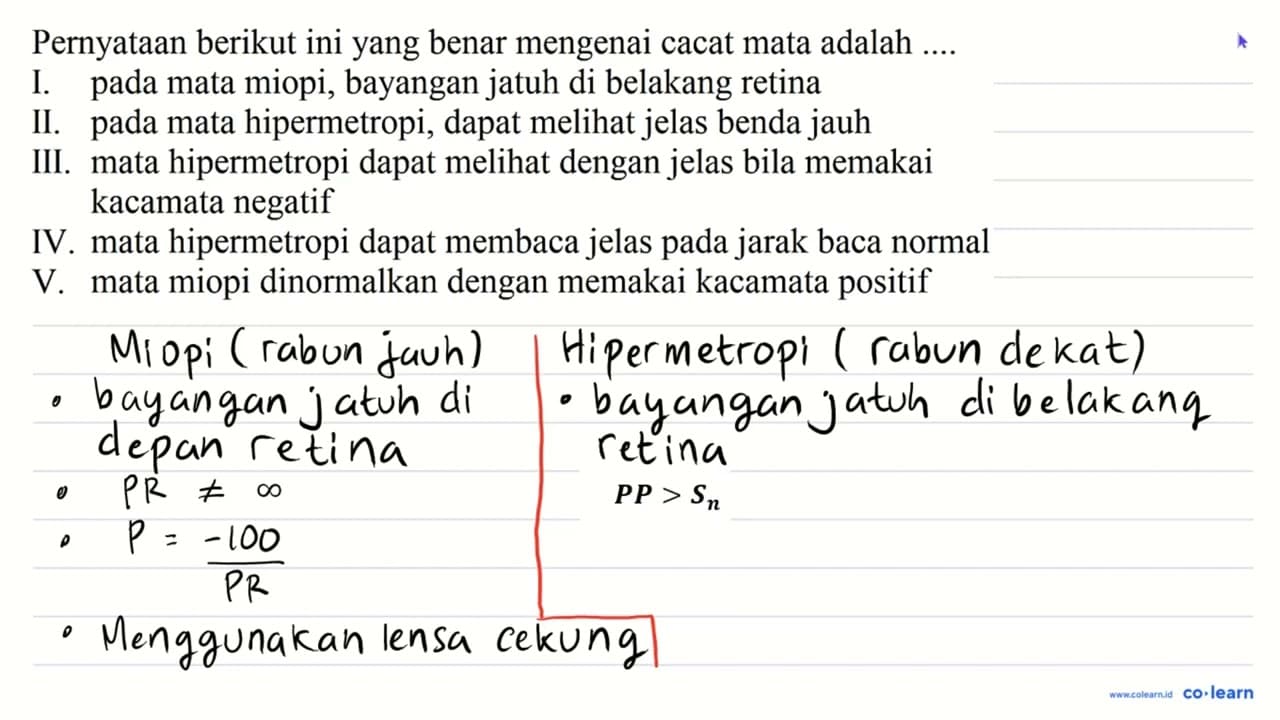 Pernyataan berikut ini yang benar mengenai cacat mata adalah ....
I. pada mata miopi, bayangan jatuh di belakang retina
II. pada mata hipermetropi, dapat melihat jelas benda jauh
III. mata hipermetropi dapat melihat dengan jelas bila memakai
kacamata negatif
IV. mata hipermetropi dapat membaca jelas pada jarak baca normal
V. mata miopi dinormalkan dengan memakai kacamata positif
Miopi (rabun jauh)
• bayangan jatuh di
depan retina
• PR ≠ ∞
• P = -100
PR
• Menggunakan lensa cekung
Hipermetropi (rabun dekat)
• bayangan jatuh di belakang
retina
PP > Sn
www.colearn.id co·learn